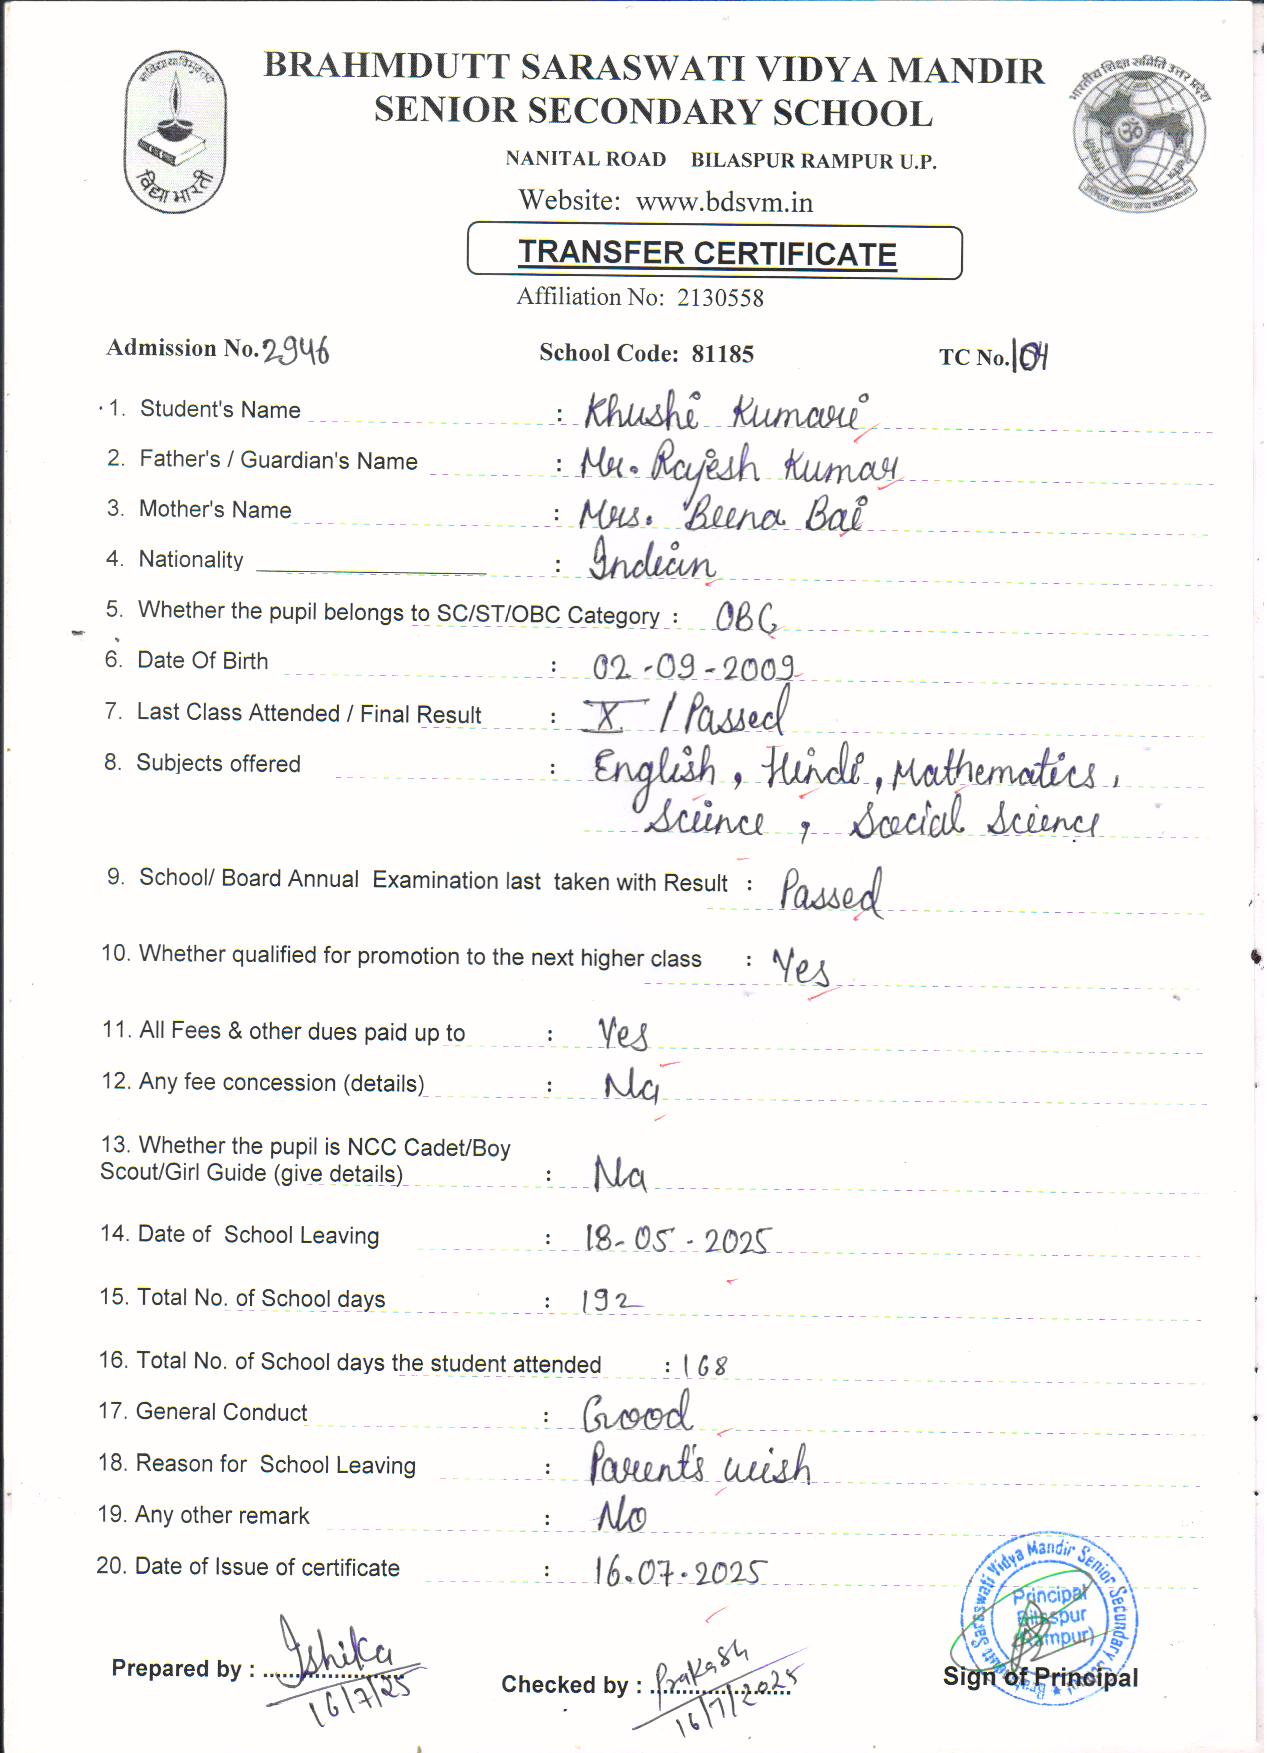 BRAHMDUTT SARASWATI VIDYA MANDIR
SENIOR SECONDARY SCHOOL
NANITAL ROAD BILASPUR RAMPUR U.P.
Website: www.bdsvm.in
विद्या भारती
भारतीय शिक्षा समिति उत्तर प्रदेश
TRANSFER CERTIFICATE
Affiliation No: 2130558
Admission No. 2946 School Code: 81185 TC No. 104
1. Student's Name : Khushi Kumari
2. Father's / Guardian's Name : Mr. Rajesh Kumar
3. Mother's Name : Mrs. Beena Bai
4. Nationality : Indian
5. Whether the pupil belongs to SC/ST/OBC Category : OBC
6. Date Of Birth : 02-09-2009
7. Last Class Attended / Final Result : X / Passed
8. Subjects offered : English, Hindi, Mathematics,
Science, Social Science
9. School/ Board Annual Examination last taken with Result : Passed
10. Whether qualified for promotion to the next higher class : Yes
11. All Fees & other dues paid up to : Yes
12. Any fee concession (details) : No
13. Whether the pupil is NCC Cadet/Boy
Scout/Girl Guide (give details) : No
14. Date of School Leaving : 18-05-2025
15. Total No. of School days : 192
16. Total No. of School days the student attended : 168
17. General Conduct : Good
18. Reason for School Leaving : Parent's wish
19. Any other remark : No
20. Date of Issue of certificate : 16.07.2025
Saraswati Vidya Mandir Senior Secundary
Principal
Bilaspur
(Rampur)
Prepared by : Ishika
16/7/25
Checked by : Prakash
16/7/2025
Sign of Principal